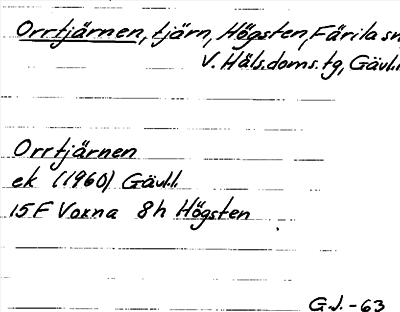 Orrtjärnen, tjärn, Högsten, Färila sn,
V. Häls.doms.tg, Gävl.l.
Orrtjärnen
ek (1960) Gävl.l.
15F Voxna 8h Högsten
G.J. - 63